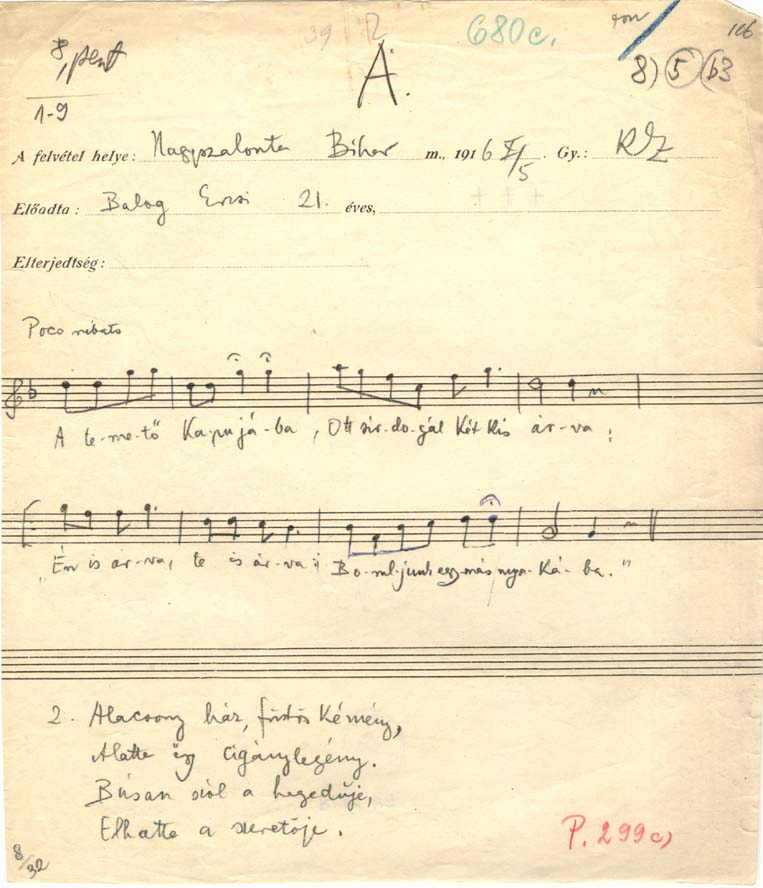 39 2 680c. 106
8, pent A. 8) 5 (b3
1-9
A felvétel helye: Nagyszalonta Bihar m., 1916 X/5. Gy.: KZ
Előadta: Balog Erzsi 21. éves,
Elterjedtség:
Poco rubato
A te-me-tő ka-pu já-ba, Ott sir-do-gál két kis ár-va:
„Én is ár-va, te is ár-va: Bo-rul-junk egy-más nya-ká-ba."
2. Alacsony ház, füstös kémény,
Alatta egy cigánylegény.
Búsan szól a hegedűje,
Elhatta a szeretője.
8/32 P. 299c)